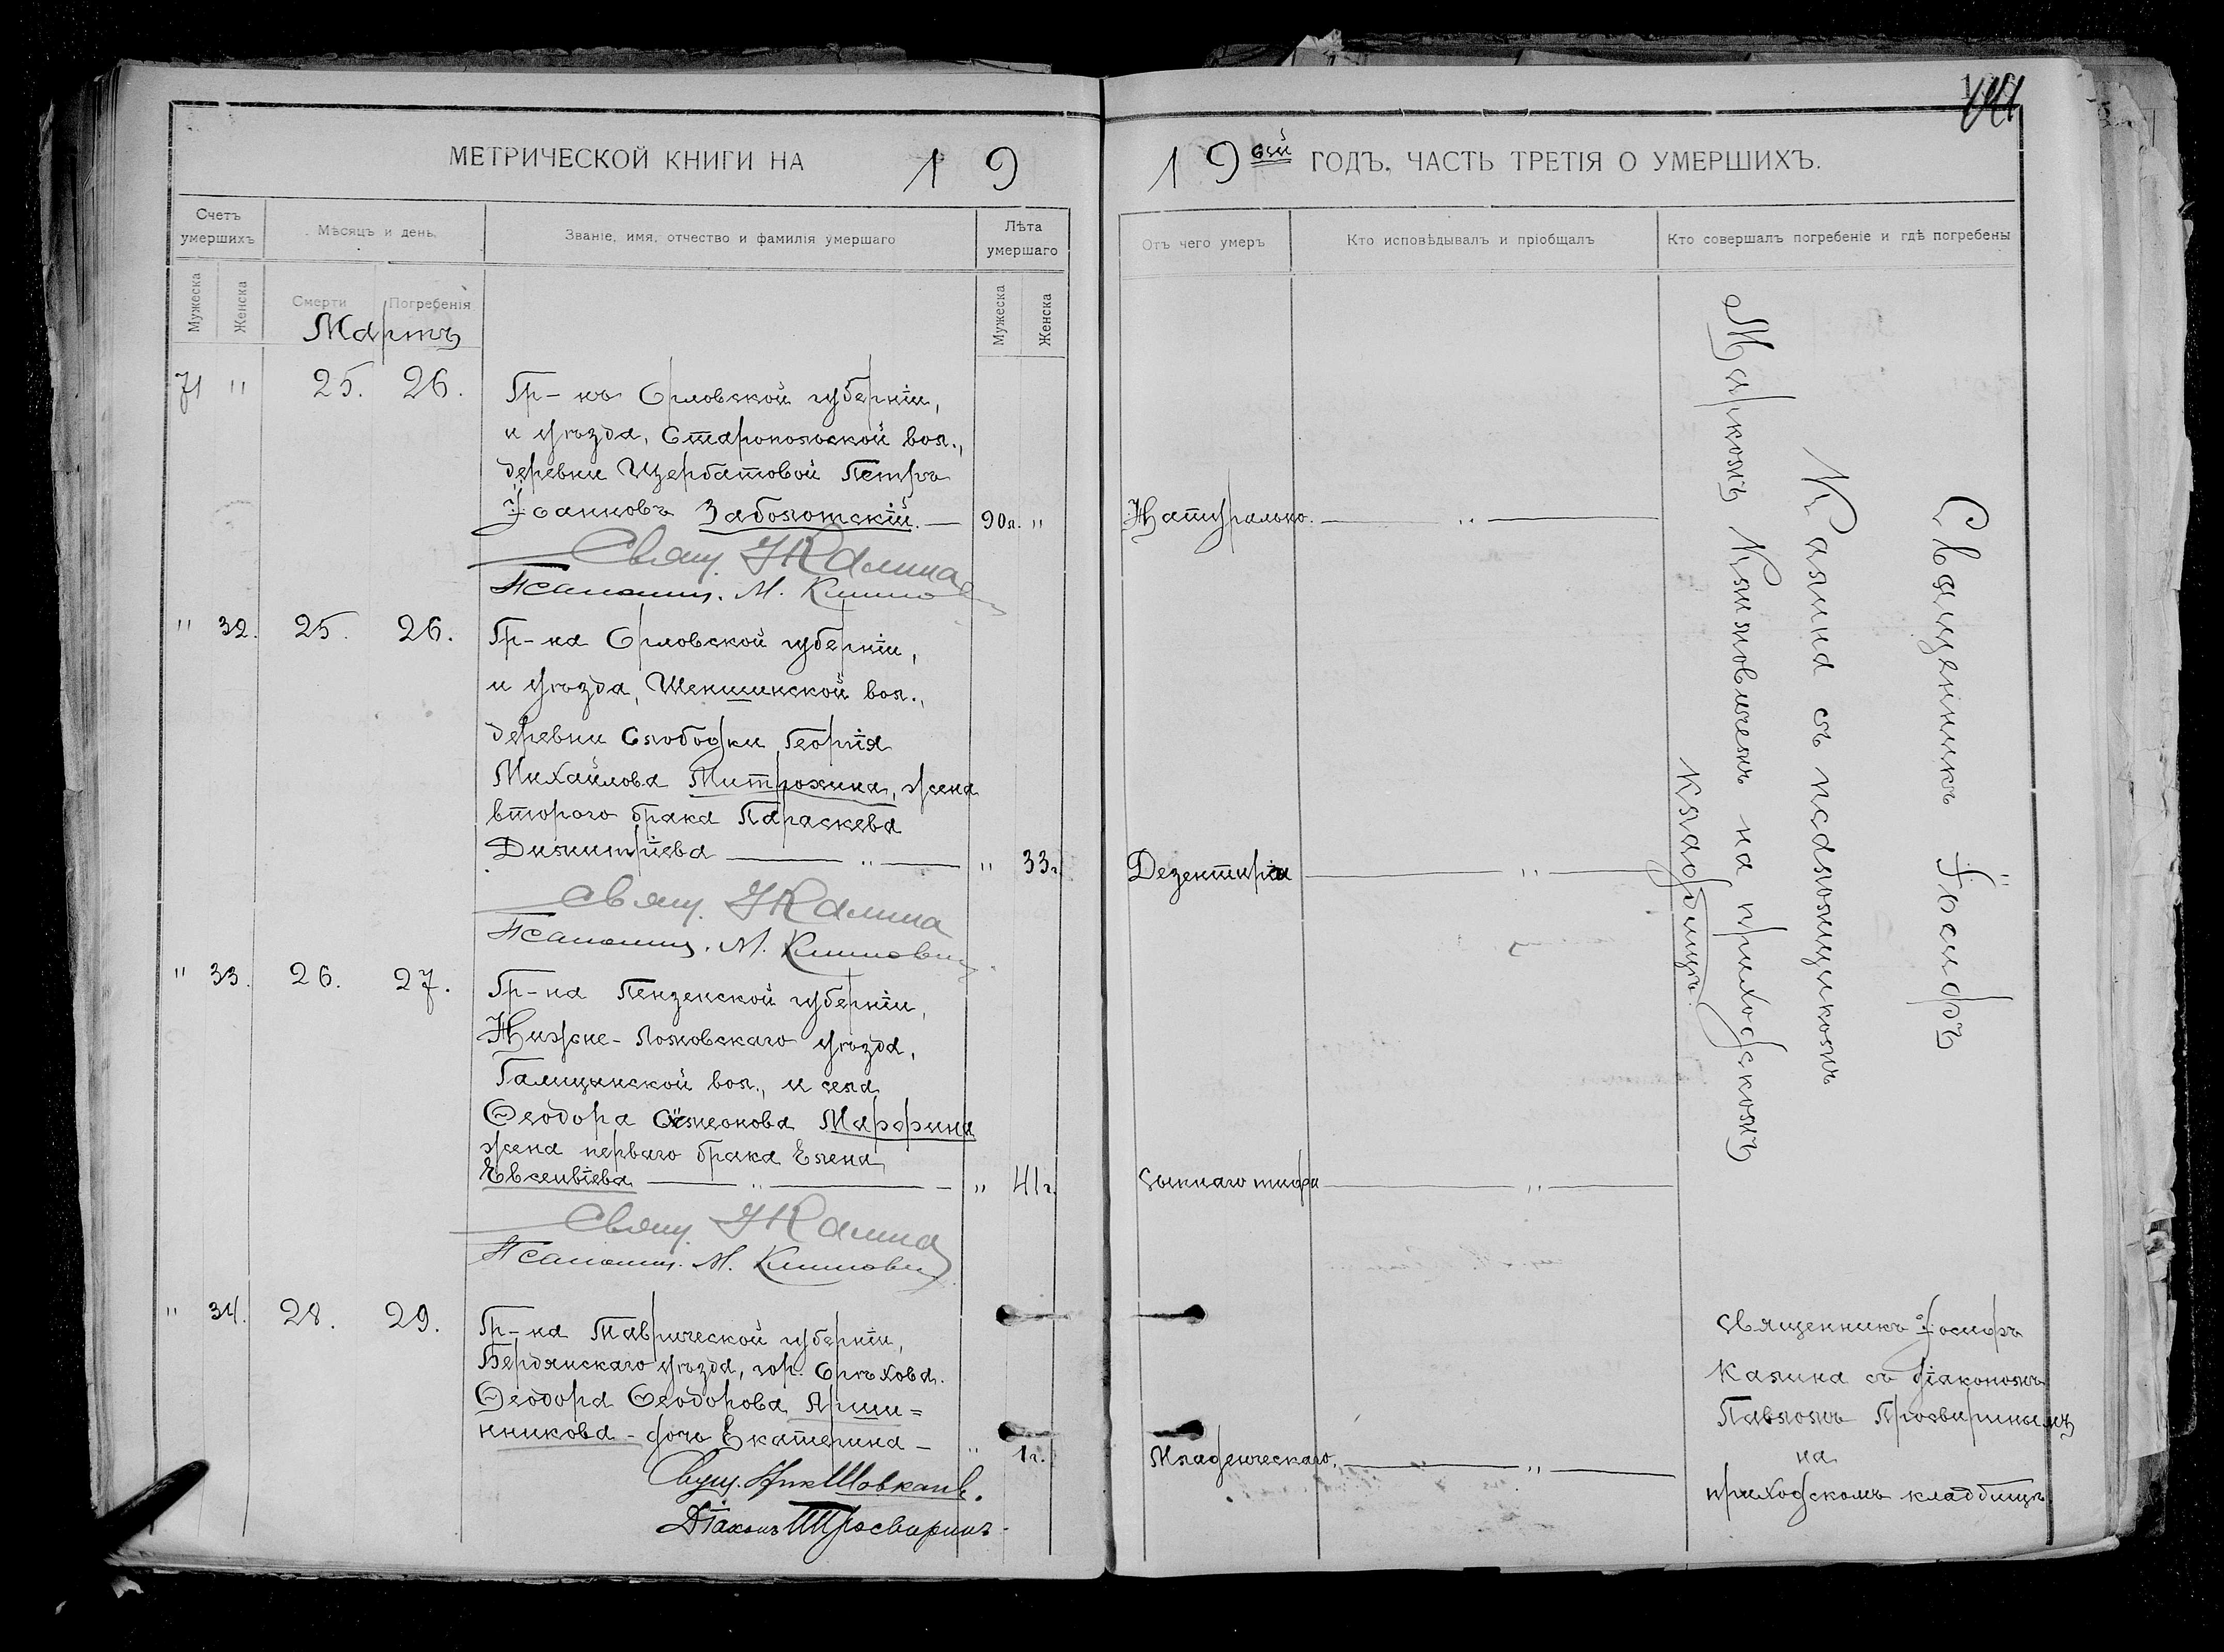 МЕТРИЧЕСКОЙ КНИГИ НА 19
Счетъ умершихъ
Мѣсяцъ и день.
Званіе, имя, отчество и фамилія умершаго
Лѣта умершаго
Мужеска
Женска
Смерти
Погребенія
Мужеска
Женска
Мартъ
71 " 25. 26.
Гр-нъ Орловской губерніи,
и уѣзда, Старопольской вол.,
деревни Щербатовой Петръ
Іоанновъ Заболотскій. — 90л. "
Свящ. І Калина
Псаломщ. М. Климович
" 32. 25. 26.
Гр-на Орловской губерніи,
и уѣзда, Шеншинской вол.,
деревни Слободки Георгія
Михайлова Митрохина, жена
второго брака Параскева
Димитріева — " — " 33г.
Свящ. І Калина
Псаломщ. М. Климович
" 33. 26. 27.
Гр-на Пензенской губерніи,
Нижне-Ломовскаго уѣзда,
Галицинской вол., и села
Ѳеодора Сѵмеонова Марфина
жена перваго брака Елена
Евсевіева — " — " 41г.
Свящ. І Калина
Псаломщ. М. Климович
" 34. 28. 29.
Гр-на Таврической губерніи,
Бердянскаго уѣзда, гор. Орѣхова
Ѳеодора Ѳеодорова Арши=
нникова - дочь Екатерина — " 1г.
Свящ. Ник Шовкопл.
Діаконъ П Просвиринъ
19 ый ГОДЪ, ЧАСТЬ ТРЕТІЯ О УМЕРШИХЪ.
Отъ чего умеръ
Кто исповѣдывалъ и пріобщалъ
Кто совершалъ погребеніе и гдѣ погребены
Натурально. — " —
Дезентеріи — " —
Сыпнаго тифа — " —
Младенческаго. — " —
Священникъ Іосифъ
Калина съ псаломщикомъ
Маркомъ Климовичемъ на приходскомъ
кладбищѣ.
Священникъ Іосифъ
Калина съ діакономъ
Павломъ Просвиринымъ
на
приходскомъ кладбищѣ